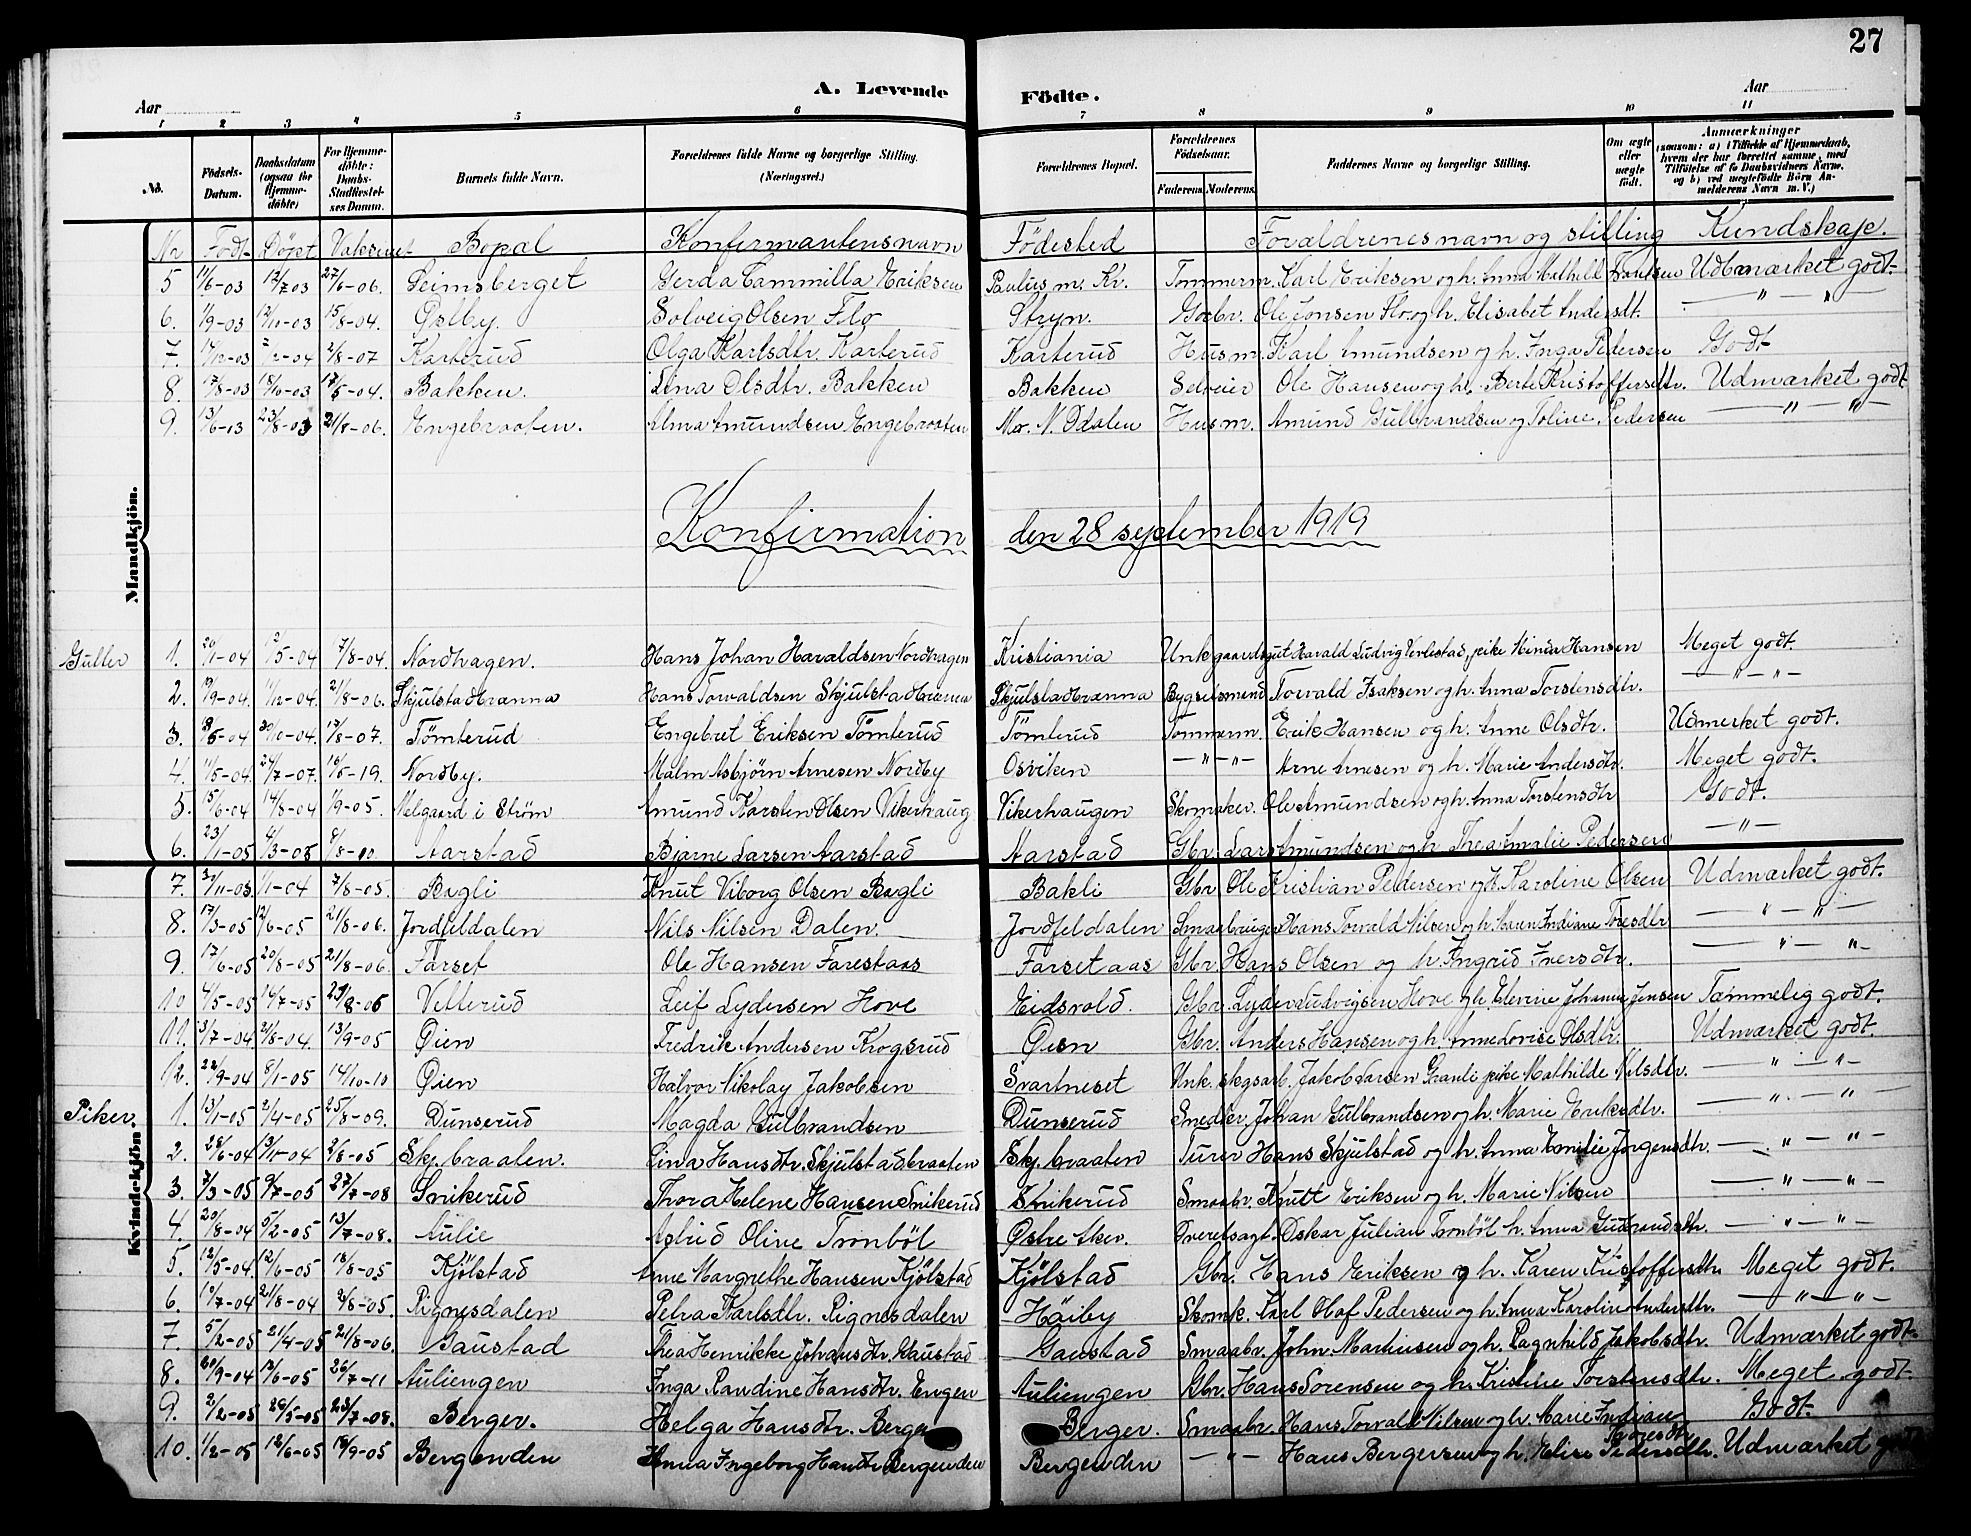 27
A. Levende Födte.
Aar
Aar
1 2 3 4 5 6 7 8 9 10 11
No. Födsels-Datum. Daabsdatum (ogsaa for Hjemme-döbte) For Hjemme-döbte: Daabs-Stadfæstel-ses Datum. Barnets fulde Navn. Forældrenes fulde Navne og borgerlige Stilling. (Næringsvei.) Forældrenes Bopæl. Forældrenes Födselsaar. Faderens. Moderens. Faddernes Navne og borgerlige Stilling. Om ægte eller uægte födt. Anmærkninger (saasom: a) i Tilfælde af Hjemmedaab, hvem der har forrettet samme, med Tilföielse af to Daabsvidners Navne, og b) ved uægtefödte Börn An-melderens Navn m. V.)
Mandkjön.
Nr Födt Döpt Vaksinert Bopæl Konfirmantens navn Födested Forældrenes navn og stilling Kundskap.
5 11/6-03 12/7 03 27/6-06. Seimsberget Gerda Cammilla Eriksen Paulus m. Kr. Tömmerm. Karl Eriksen og h. Anna Mathill Paulsen Udmærket godt
6. 1/9-03 12/10-03 15/8-04. Östby. Solveig Olsen Flo Stryn. Gbr. Ole Jonsen Flo og h. Elisabet Andersdt. — " — " —
7. 14/12-03 2/2-04 2/8-07 Karterud Olga Karlsdtr. Karterud Karterud Husm. Karl Amundsen og h. Inga Pedersen Godt
8. 17/8-03 18/10-03 17/5-04. Bakken. Lina Olsdtr. Bakken Bakken Selveier Ole Hansen og h. Berte Kristoffersdtr. Udmærket godt
9. 13/6-03 23/8-03 21/8-06. Engebraaten. Alma Amundsen Engebraaten N. Odalen Husm. Amund Gulbrandsen og Toline Pedersen — " — " —
Konfirmation den 28 september 1919
Gutter 1. 20/1-04 12/5-04 17/8-04. Nordhagen. Hans Johan Haraldsen Nordhagen Kristiania Unk gaardsgut Harald Ludvig , pike Minda Hansen Meget godt.
2. 19/9-04. 11/12-04. 21/8-06. Skjulstadbrænna Hans Torvaldsen Skjulstadbrænna Skjulstadbrænna Bygselsmand Torvald Isaksen og h. Anna Torstensdtr. — " — " —
3. 18/5-04 30/10-04. 17/8-07. Tömterud Engebret Eriksen Tömterud Tömterud Tömmerm. Erik Hansen og h. Anne Olsdtr. Udmerket godt.
4. 11/5-04. 27/7-07. 16/5-19. Nordby. Malm Asbjörn Arnesen Nordby Osviken — " — " — Arne Arnesen og h. Marie Andersdtr. Meget godt.
5. 15/6-04 14/8-04 1/9-05. Melgaard i Ström Amund Karsten Olsen Vikerhaug Vikerhaugen Skomaker. Ole Amundsen og h. Anna Torstensdtr Godt.
6. 23/1-05 4/3-05 9/8-10. Aarstad Bjarne Larsen Aarstad Aarstad Gbr. Lars Amundsen og h. Thea Amalie Pedersen — " —
Kvindekjön
7. 27/11-03 1/1-04 7/8-05. Bagli Knut Viborg Olsen Bagli Bakli Gbr Ole Kristian Pedersen og h. Karoline Olsen Udmærket godt.
8. 17/3-05 12/6-05 21/8-06. Jordfeldalen Nils Nilsen Dalen. Jordfeldalen Smaabruger Hans Torvald Nilsen og h. Maren Indiane Toresdtr — " — " —
9. 17/6-05 20/8-05 21/8-06. Farset Ole Hansen Farestaas Farsetaas Gbr. Hans Olsen og h. Ingrid Iversdtr. — " — " —
10 4/5-05 14/7-05 29/8-06 Velterud Leif Lydersen Hove Eidsvold. Gbr. Lyder Ludvigsen Hove og h. Elevine Johanne Jensen Tæmmelig godt.
11. 3/7-04 21/8-04. 13/9-05 Øien Fredrik Andersen Krogsrud Øien Gbr. Anders Hansen og h. Anne Lovise Olsdtr. Udmærket godt.
12. 22/9-04 8/1-05 14/10-10 Øien Halvor Nikolay Jakobsen Svartneset Unk. skgsarb. Jakob Larsen Granli pike Mathilde Nilsdtr. — " — " —
Piker. 1. 13/1-05 2/4-05 25/8-09. Dunserud Magda Gulbrandsen Dunserud Snedker Johan Gulbrandsen og h. Marie Eriksdtr. — " — " —
2. 28/6-04 13/11-04 2/8-05 Skj. braaten. Lina Hansdtr. Skjulstadbraaten Skj. braaten Hans Skjulstad og h. Anna Emilie Jørgensdtr. — " — " —
3. 7/3-05 9/7-05 27/7-08 Snikerud Thora Helene Hansen Snikerud Snikerud Smaabr. Knutt Eriksen og h. Marie Nilsen — " — " —
4. 20/8-04 5/2-05 13/7-08. Aulie Astrid Oline Tronböl Östre Aker. Oskar Julian Tronböl h. Anna Gudbrandsdtr. — " — " —
5. 12/5-04 12/6-05 18/8-05 Kjölstad Anne Margrethe Hansen Kjölstad Kjölstad Gbr. Hans Eriksen og h. Karen Kristoffersdtr. Meget godt.
6. 10/7-04 21/8-04 2/8-05. Rignesdalen Petra Karlsdtr. Rignesdalen Höiby Skomk. Karl Olaf Pedersen og h. Anna Karoline Andersdtr. — " — " —
7. 5/2-05 21/4-05 21/8-06. Gaustad Thea Henrikke Johansdtr. Gaustad Gaustad Smaabr. John Martinsen og h. Ragnhild Jakobsdtr. Udmærket godt.
8. 30/9-04 12/6-05 26/7-11 Auliengen Inga Randine Hansdtr. Engen Auliengen Gbr. Hans Sorensen og h. Kristine Torstensdtr. Meget godt.
9. 2/2-05 29/5-05 23/7-08. Berger. Helga Hansdtr. Berger Berger. Smaabr. Hans Torvald Nilsen og h. Marie Indiane Toresdtr Godt.
10. 1/2-05 12/6-05 19/9-05 Bergenden Anna Ingeborg Hansdtr Bergenden Bergenden — " — Hans Bergersen og h. Elise Pedersdtr. Udmærket godt